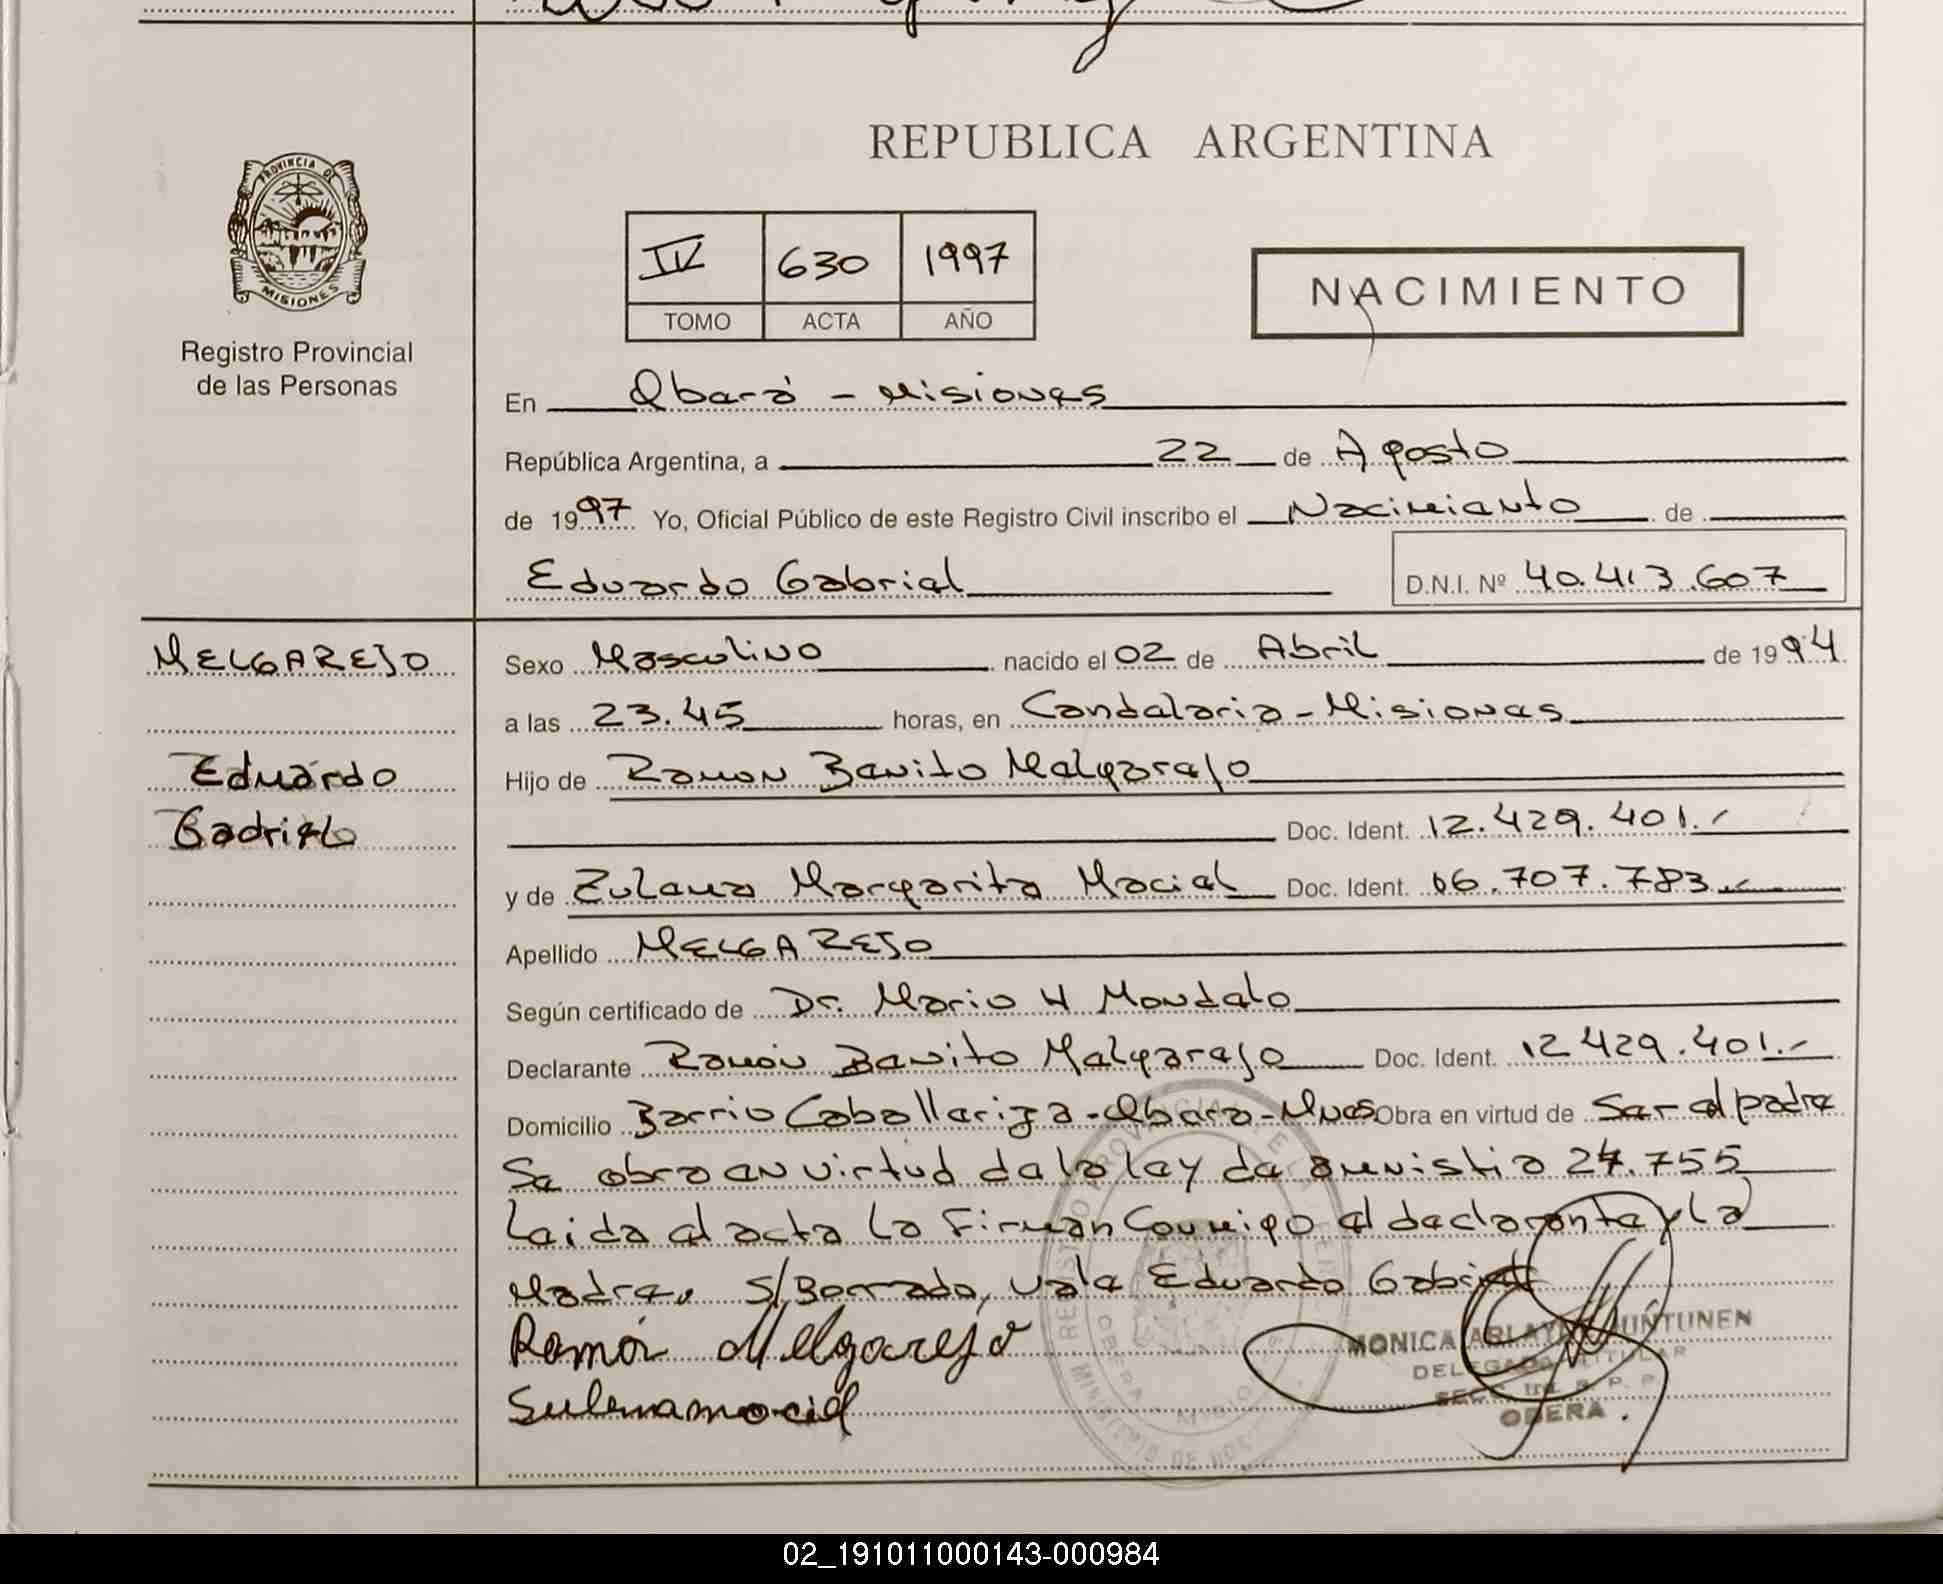 REPUBLICA ARGENTINA
PROVINCIA DE
MISIONES
Registro Provincial
de las Personas
IV 630 1997
TOMO ACTA AÑO
NACIMIENTO
En Oberá - Misiones
República Argentina, a 22 de Agosto
de 1997 Yo, Oficial Público de este Registro Civil inscribo el Nacimiento de
Eduardo Gabriel D.N.I. Nº 40.413.607
MELGAREJO
Eduardo
Gabriel
Sexo Masculino nacido el 02 de Abril de 1994
a las 23.45 horas, en Candelaria - Misiones
Hijo de Ramon Benito Melgarejo
Doc. Ident. 12.429.401.-
y de Zulema Margarita Maciel Doc. Ident. 16.707.783.-
Apellido MELGAREJO
Según certificado de Dr. Mario H Mondelo
Declarante Ramón Benito Melgarejo Doc. Ident. 12 429.401.-
Domicilio Barrio Caballeriza - Obera - Mnes Obra en virtud de Ser el padre
Se obra en virtud de la ley de amnistia 24.755
Leida el acta la Firman Conmigo el declarante y la
Madre. S/Borrado, vale Eduardo Gabriel
Ramón Melgarejo
Sulema maciel
MONICA
DELEGADA TITULAR
OBERA
02_191011000143-000984